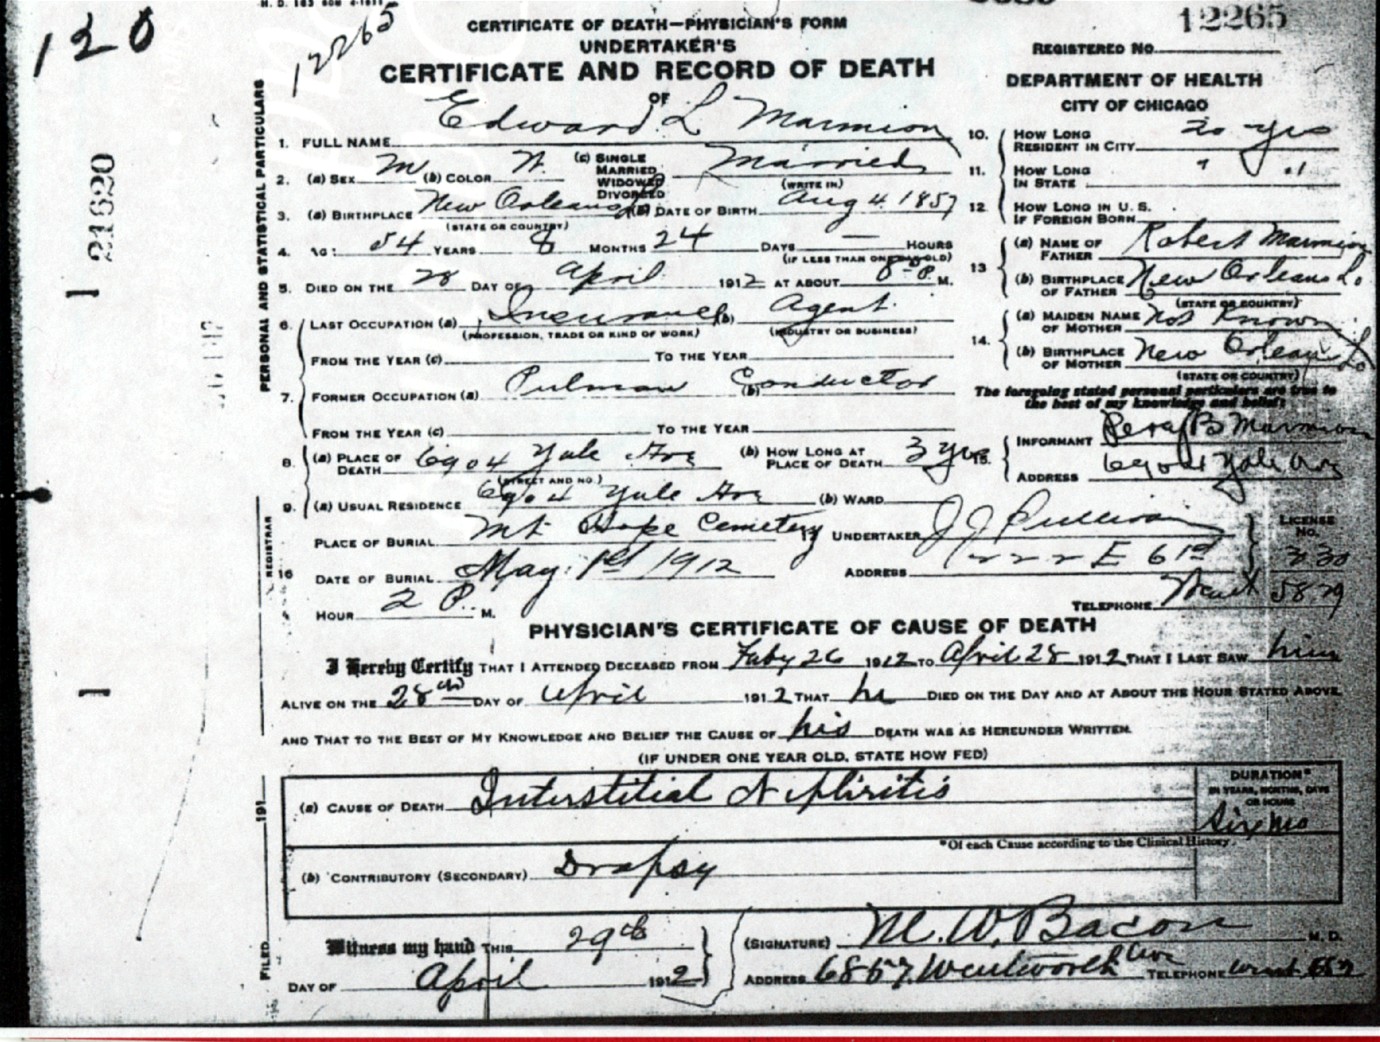 120
12265
CERTIFICATE OF DEATH—PHYSICIAN'S FORM
UNDERTAKER'S
CERTIFICATE AND RECORD OF DEATH
OF
12265
REGISTERED No.
DEPARTMENT OF HEALTH
CITY OF CHICAGO
PERSONAL AND STATISTICAL PARTICULARS
1. FULL NAME Edward L Marmion
2. (a) SEX M (b) COLOR W. (c) SINGLE MARRIED WIDOWED DIVORCED Married
(WRITE IN)
3. (a) BIRTHPLACE New Orleans (b) DATE OF BIRTH Aug 4 1857
(STATE OR COUNTRY)
4. 54 YEARS 8 MONTHS 24 DAYS — HOURS
(IF LESS THAN ONE DAY OLD)
5. DIED ON THE 28 DAY OF April 1912 AT ABOUT 8 P. M.
6. LAST OCCUPATION (a) Insurance (b) Agent
(PROFESSION, TRADE OR KIND OF WORK) (INDUSTRY OR BUSINESS)
FROM THE YEAR (c) TO THE YEAR
7. FORMER OCCUPATION (a) Pulman (b) Conductor
FROM THE YEAR (c) TO THE YEAR
8. (a) PLACE OF DEATH 6904 Yale Ave (b) HOW LONG AT PLACE OF DEATH 3 yrs
(STREET AND NO.)
9. (a) USUAL RESIDENCE 6904 Yale Ave (b) WARD
10. HOW LONG RESIDENT IN CITY 20 yrs
11. HOW LONG IN STATE " "
12. HOW LONG IN U. S. IF FOREIGN BORN
13 (a) NAME OF FATHER Robert Marmion
(b) BIRTHPLACE OF FATHER New Orleans La
(STATE OR COUNTRY)
14. (a) MAIDEN NAME OF MOTHER Not Known
(b) BIRTHPLACE OF MOTHER New Orleans La
(STATE OR COUNTRY)
The foregoing stated personal particulars are true to
the best of my knowledge and belief:
15. INFORMANT B Marmion
ADDRESS 6904 Yale Ave
REGISTRAR
PLACE OF BURIAL Mt Hope Cemetery
16 DATE OF BURIAL May 1st 1912
HOUR 2 P. M.
17 UNDERTAKER J J Sullivan
ADDRESS 222 E 61st
TELEPHONE 5879
LICENSE No. 330
PHYSICIAN'S CERTIFICATE OF CAUSE OF DEATH
I Hereby Certify THAT I ATTENDED DECEASED FROM Feby 26 1912 TO April 28 1912 THAT I LAST SAW him
ALIVE ON THE 28th DAY OF April 1912 THAT he DIED ON THE DAY AND AT ABOUT THE HOUR STATED ABOVE,
AND THAT TO THE BEST OF MY KNOWLEDGE AND BELIEF THE CAUSE OF his DEATH WAS AS HEREUNDER WRITTEN.
(IF UNDER ONE YEAR OLD, STATE HOW FED)
(a) CAUSE OF DEATH Interstitial Nephritis
DURATION*
IN YEARS, MONTHS, DAYS
OR HOURS
Six Mo
*Of each Cause according to the Clinical History.
(b) CONTRIBUTORY (SECONDARY) Dropsy
Witness my hand THIS 29th
DAY OF April 1912
(SIGNATURE) M. W. Bacon M. D.
ADDRESS 6857 Wentworth Ave TELEPHONE
FILED 191
1 21620
1